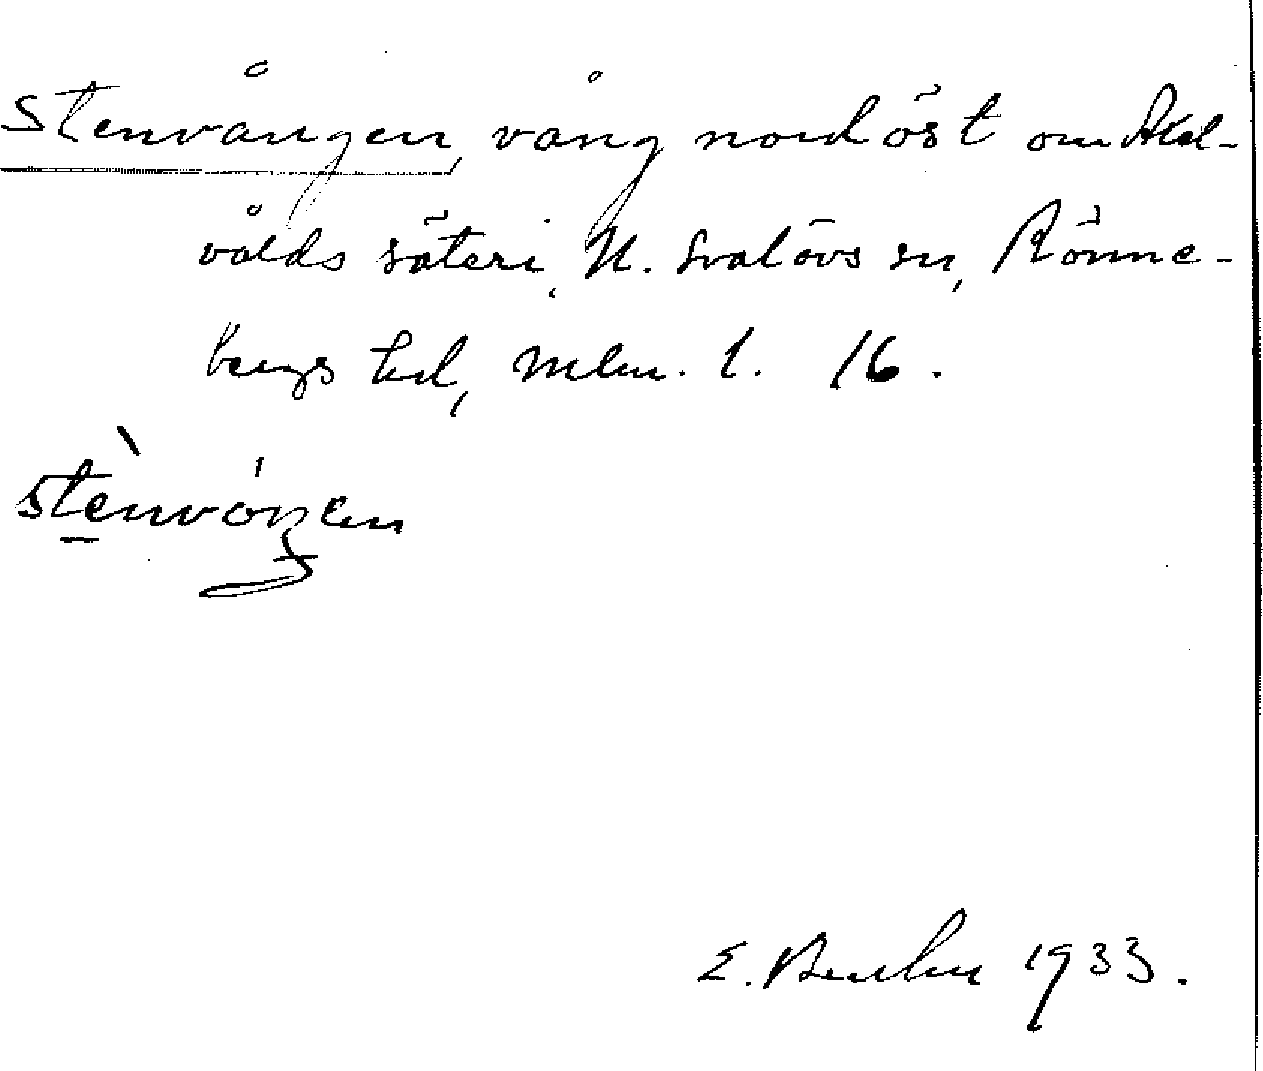 Stenvången, vång nordöst om Axel-
völds säteri, N. Svalövs sn, Rönne-
bergs hd, Mlm. l. 16.
stènvóŋen
E. 1933.